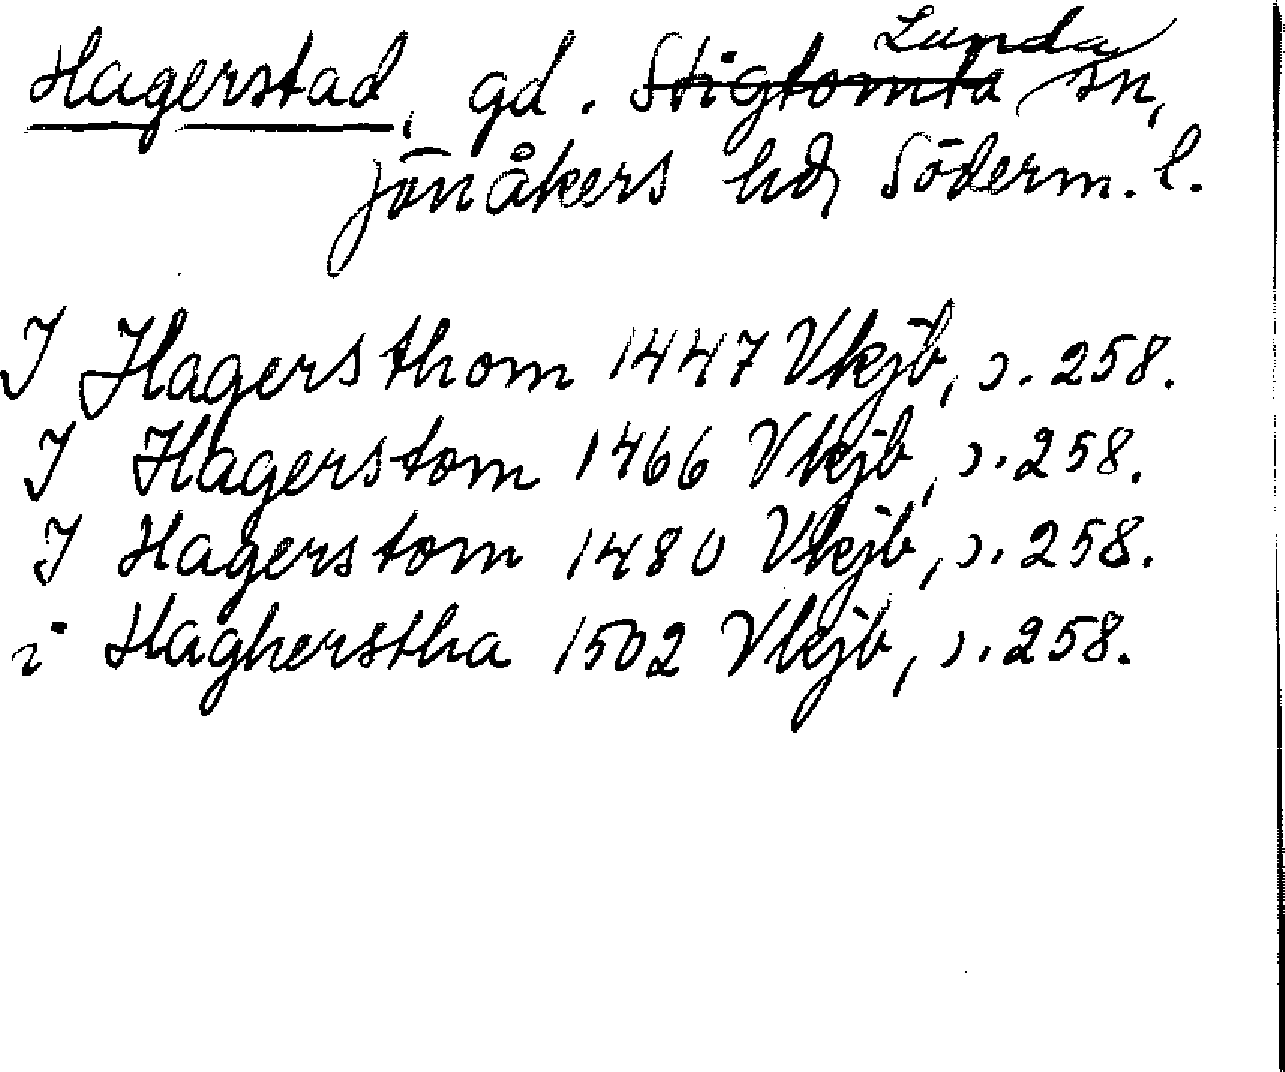 Hagerstad, gd. Stigtomta Lunda sn,
Jönåkers hd, Söderm. l.
I Hagersthom 1447 Vkjb, s. 258.
I Hagerstom 1466 Vkjb, s. 258.
I Hagerstom 1480 Vkjb, s. 258.
i Hagherstha 1502 Vkjb, s. 258.